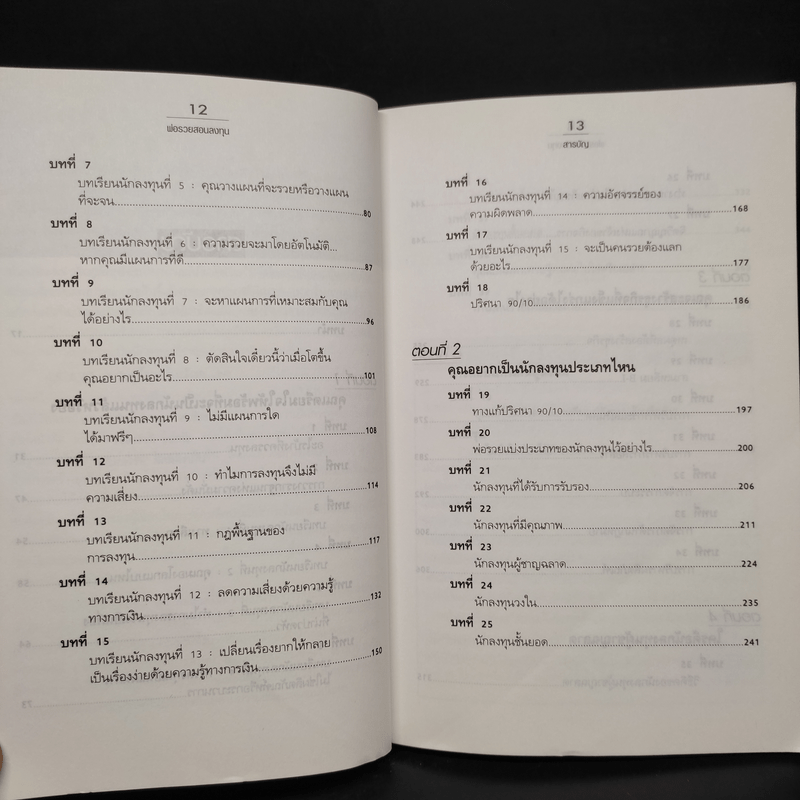 12
พ่อรวยสอนลงทุน
บทที่ 7
บทเรียนนักลงทุนที่ 5 : คุณวางแผนที่จะรวยหรือวางแผน
ที่จะจน...80
บทที่ 8
บทเรียนนักลงทุนที่ 6 : ความรวยจะมาโดยอัตโนมัติ...
หากคุณมีแผนการที่ดี...87
บทที่ 9
บทเรียนนักลงทุนที่ 7 : จะหาแผนการที่เหมาะสมกับคุณ
ได้อย่างไร...96
บทที่ 10
บทเรียนนักลงทุนที่ 8 : ตัดสินใจเดี๋ยวนี้ว่าเมื่อโตขึ้น
คุณอยากเป็นอะไร...101
บทที่ 11
บทเรียนนักลงทุนที่ 9 : ไม่มีแผนการใด
ได้มาฟรีๆ...108
บทที่ 12
บทเรียนนักลงทุนที่ 10 : ทำไมการลงทุนจึงไม่มี
ความเสี่ยง...114
บทที่ 13
บทเรียนนักลงทุนที่ 11 : กฎพื้นฐานของ
การลงทุน...117
บทที่ 14
บทเรียนนักลงทุนที่ 12 : ลดความเสี่ยงด้วยความรู้
ทางการเงิน...132
บทที่ 15
บทเรียนนักลงทุนที่ 13 : เปลี่ยนเรื่องยากให้กลาย
เป็นเรื่องง่ายด้วยความรู้ทางการเงิน...150
13
สารบัญ
บทที่ 16
บทเรียนนักลงทุนที่ 14 : ความอัศจรรย์ของ
ความผิดพลาด...168
บทที่ 17
บทเรียนนักลงทุนที่ 15 : จะเป็นคนรวยต้องแลก
ด้วยอะไร...177
บทที่ 18
ปริศนา 90/10...186
ตอนที่ 2
คุณอยากเป็นนักลงทุนประเภทไหน
บทที่ 19
ทางแก้ปริศนา 90/10...197
บทที่ 20
พ่อรวยแบ่งประเภทของนักลงทุนไว้อย่างไร...200
บทที่ 21
นักลงทุนที่ได้รับการรับรอง...206
บทที่ 22
นักลงทุนที่มีคุณภาพ...211
บทที่ 23
นักลงทุนผู้ชาญฉลาด...224
บทที่ 24
นักลงทุนวงใน...235
บทที่ 25
นักลงทุนชั้นยอด...241